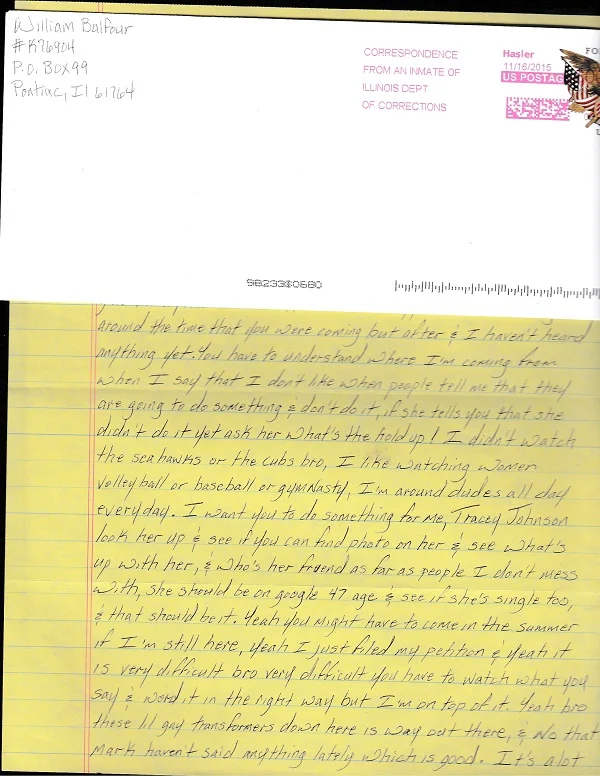 William Balfour
#K76904
P.O. Box 99
Pontiac, Il 61764
CORRESPONDENCE
FROM AN INMATE OF
ILLINOIS DEPT
OF CORRECTIONS
Hasler
11/16/2015
US POSTAG
FO
98233$0680
around the time that you were coming but after & I haven't heard
anything yet. You have to understand where I'm coming from
when I say that I don't like when people tell me that they
are going to do something & don't do it, if she tells you that she
didn't do it yet ask her what's the hold up! I didn't watch
the seahawks or the cubs bro, I like watching women
volleyball or baseball or gymnasty, I'm around dudes all day
everyday. I want you to do something for me, Tracey Johnson
look her up & see if you can find photo on her & see what's
up with her, & who's her friend as far as people I don't mess
with, she should be on google 47 age & see if she's single too,
& that should be it. Yeah you might have to come in the summer
if I'm still here, yeah I just filed my petition & yeah it
is very difficult bro very difficult you have to watch what you
say & word it in the right way but I'm on top of it. Yeah bro
these lil gay transformers down here is way out there, & No that
Mark haven't said anything lately which is good. It's alot